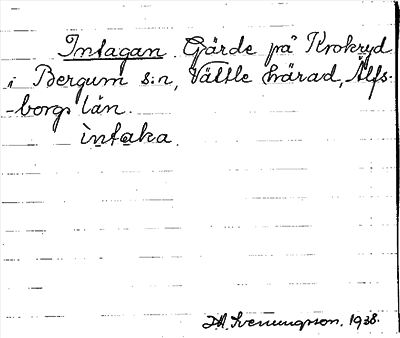 Intagan. Gärde på Krokryd
i Bergum s:n, Vättle härad, Älfs-
-borgs län.
ìntaka.
Svenungsson. 1938.